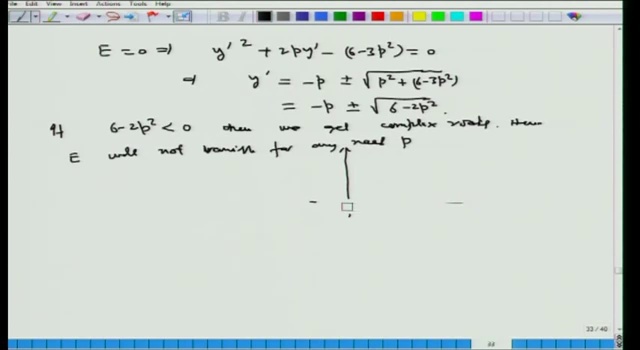 File Edit View Insert Actions Tools Help
E = 0 ⇒ y'² + 2py' - (6-3p²) = 0
⇒ y' = -p ± √(p² + (6-3p²))
= -p ± √(6-2p²).
If 6-2p² < 0 then we get complex roots. Hence
E will not vanish for any real p
33 / 40
33